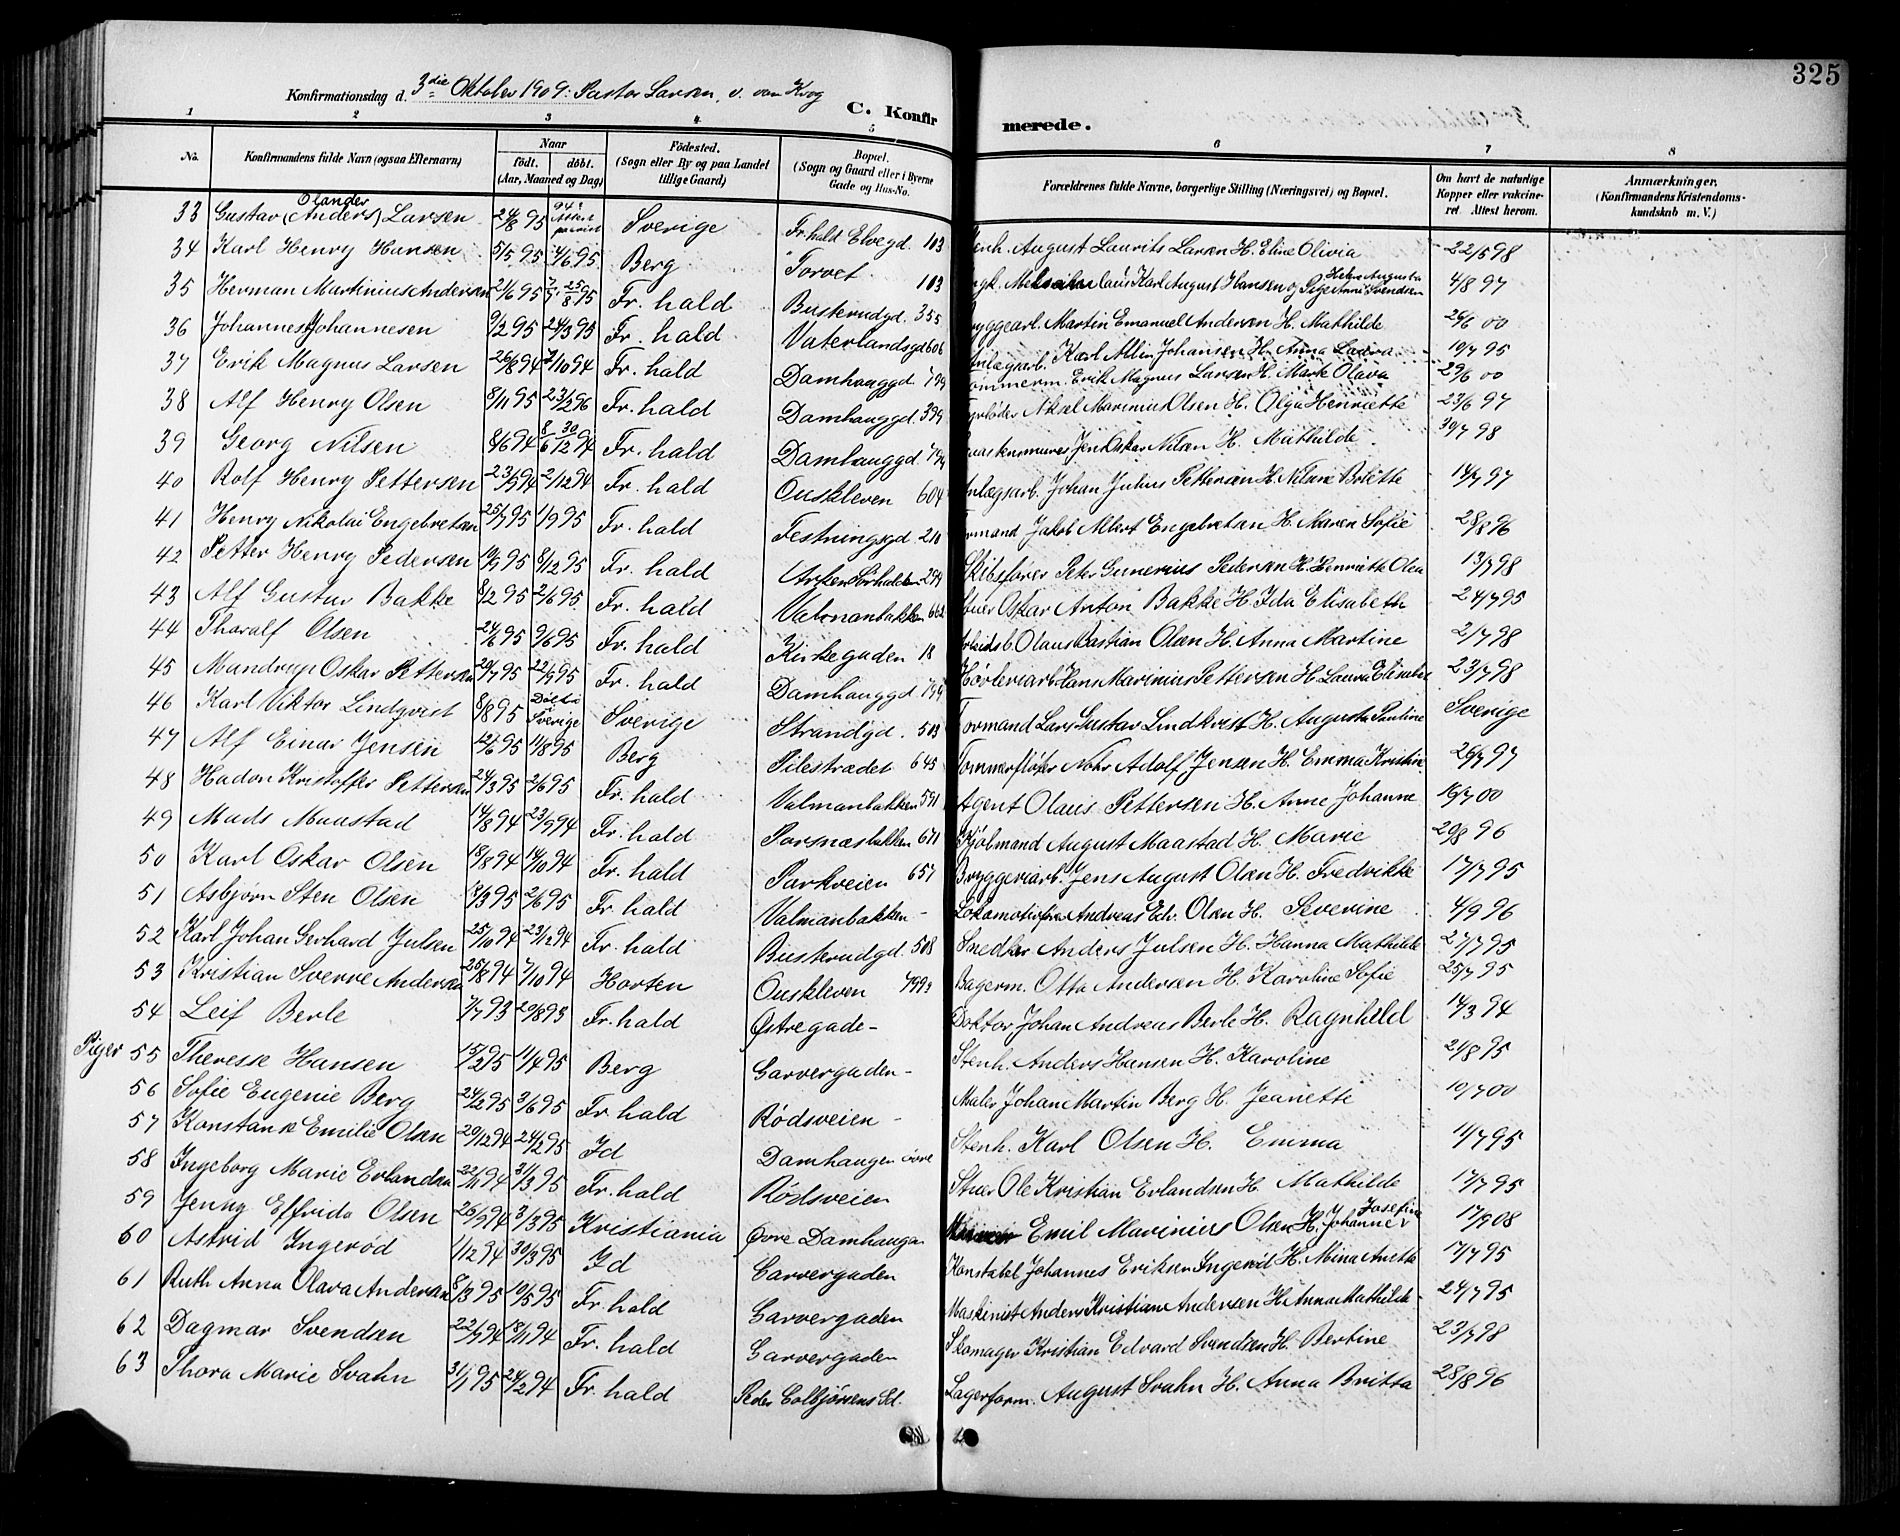 325
Konfirmationsdag d. 3die Oktober 1909: Pastor Larsen, v. van Krog
C. Konfirmerede.
1 2 3 4 5 6 7 8
No. Konfirmandens fulde Navn (ogsaa Efternavn) Naar födt. döbt. (Aar, Maaned og Dag) Födested. (Sogn eller By og paa Landet tillige Gaard) Bopæl. (Sogn og Gaard eller i Byerne Gade og Hus-No. Forældrenes fulde Navne, borgerlige Stilling (Næringsvei) og Bopæl. Om havt de naturlige Kopper eller vakcineret Attest herom. Anmærkninger. (Konfirmandens Kristendomskundskab m. V.)
Olander
33 Gustav (Anders) Larsen 24/8 95 Sverige Fr.hald Elvegd. 103 Stenh. August Laurits Larsen H. Eline Olivia 22/5 98
34 Karl Henry Hansen 5/5 95 4/6 95 Berg Torvet 103 Karl August Hansen og Svendsen 4/8 97
35 Herman Martinius Andersen 21/6 95 25/8 95 Fr. hald Buskrudgd. 355 Bryggearb. Martin Emanuel Andersen H. Mathilde 26/6 00
36 Johannes Johannesen 9/2 95 24/3 95 Fr. hald Vaterlandsgd 606 Anlægsarb. Karl Albin Johansen H. Anna Laura 10/7 95
37 Erik Magnus Larsen 26/8 94 7/10 94 Fr. hald Damhauggd. 799 Tömmerm. Erik Magnus Larsen H. Mark Olava 29/6 00
38 Alf Henry Olsen 8/11 95 23/2 96 Fr. hald Damhauggd. 399 Fyrböder Aksel Marinius Olsen H. Olga Henriette 23/6 97
39 Georg Nilsen 8/6 94 30/12 94 Fr. hald Damhauggd. 799 Jens Oskar Nilsen H. Mathilde 30/7 98
40 Rolf Henry Pettersen 23/9 94 2/12 94 Fr. hald Ouskleven 604 Anlægsarb. Johan Julius Pettersen H. Nilsine Britte 14/7 97
41 Henry Nikolai Engebretsen 25/7 95 1/9 95 Fr. hald Festningsgd. 210 Formand Jakob Albert Engebretsen H. Maren Sofie 28/8 96
42 Petter Henry Pedersen 10/7 95 8/12 95 Fr. hald Sörhalden 299 Skibsförer Peter Gunerius Pedersen H. Henriette Olea 13/7 98
43 Alf Gustav Bakke 8/2 95 2/6 95 Fr. hald Valmanbakken 662 Stuer Oskar Anton Bakke H. Ida Elisabeth 24/7 95
44 Thoralf Olsen 24/6 95 9/6 95 Fr. hald Kirkegaden 18 Arbeidsb. Olaus Bastian Olsen H. Anna Martine 2/7 98
45 Mandrup Oskar Pettersen 20/7 95 22/9 95 Fr. hald Damhauggd 799 Hövleriarb. Hans Marinius Pettersen H. Laura Elisabet 23/7 98
46 Karl Viktor Lindqvist 8/8 95 Döbt i Sverige Sverige Strandgd. 503 Formand Lars Gustav Lindkvist H. Augusta Pauline Sverige
47 Alf Einar Jensen 12/6 95 11/8 95 Berg Pilestrædet 645 Tömmerfløter Nohr Adolf Jensen H. Emma Kristine 26/7 97
48 Hadon Kristoffer Pettersen 24/3 95 2/6 95 Fr. hald Valmanbakken 591 Agent Olaus Pettersen H. Anne Johanne 10/7 00
49 Mads Maastad 14/8 94 23/9 94 Fr. hald Porsnæsbakken 671 Hjölmand August Maastad H. Marie 29/8 96
50 Karl Oskar Olsen 18/8 94 14/10 94 Fr. hald Parkveien 657 Bryggeriarb. Jens August Olsen H. Fredrikke 17/7 95
51 Asbjørn Sten Olsen 13/3 95 2/6 95 Fr. hald Valmanbakken - Lokomotivfører Andreas Edv. Olsen H. Severine 4/9 96
52 Karl Johan Gerhard Julsen 25/10 94 23/12 94 Fr. hald Buskrudgd. 508 Snedker Anders Julsen H. Hanna Mathilde 27/7 95
53 Kristian Sverre Andersen 25/8 94 7/10 94 Horten Ouskleven Bagerm. Otto Andersen H. Karoline Sofie 25/7 95
54 Leif Berle 7/7 93 20/8 93 Fr. hald Østregade - Doktor Johan Andreas Berle H. Ragnhild 14/3 94
Piger 55 Theresse Hansen 15/2 95 11/4 95 Berg Garvergaden - Stenh. Anders Hansen H. Karoline 21/8 95
56 Sofie Eugenie Berg 24/2 95 3/6 95 Fr. hald Rödsveien - Maler Johan Martin Berg H. Jeanette 10/7 00
57 Konstanse Emilie Olsen 20/12 94 24/2 95 Id Damhaugen övre Stenh. Karl Olsen H. Emma 11/7 95
58 Ingeborg Marie Erlandsen 22/11 94 31/3 95 Fr. hald Rödsveien Stuer Ole Kristian Erlandsen H. Mathilde 17/7 95
59 Jenny Elfrida Olsen 26/9 94 31/3 95 Kristiania Övre Damhaugen Emil Marinius Olsen H. Johanne Josefine 17/9 08
60 Astrid Ingeröd 1/12 94 30/3 95 Id Garvergaden Konstabel Johannes Eriksen Ingeröd H. Mina Anette 17/7 95
61 Ruth Anna Olava Andersen 8/3 95 19/5 95 Fr. hald Garvergaden Maskinist Anders Kristian Andersen H. Anna Mathilde 24/7 95
62 Dagmar Svendsen 22/9 94 18/11 94 Fr. hald Garvergaden Skomager Kristian Edvard Svendsen H. Bertine 23/7 98
63 Thora Marie Svahn 31/1 95 24/2 94 Fr. hald Peder Colbjörnsens Gd. Lagerform. August Svahn H. Anna Britta 28/8 96